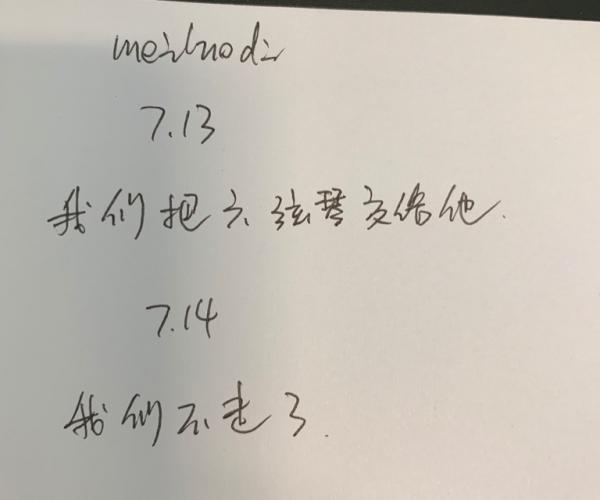 meihuodi
7.13
我们把六弦琴交给他.
7.14
我们不走了.